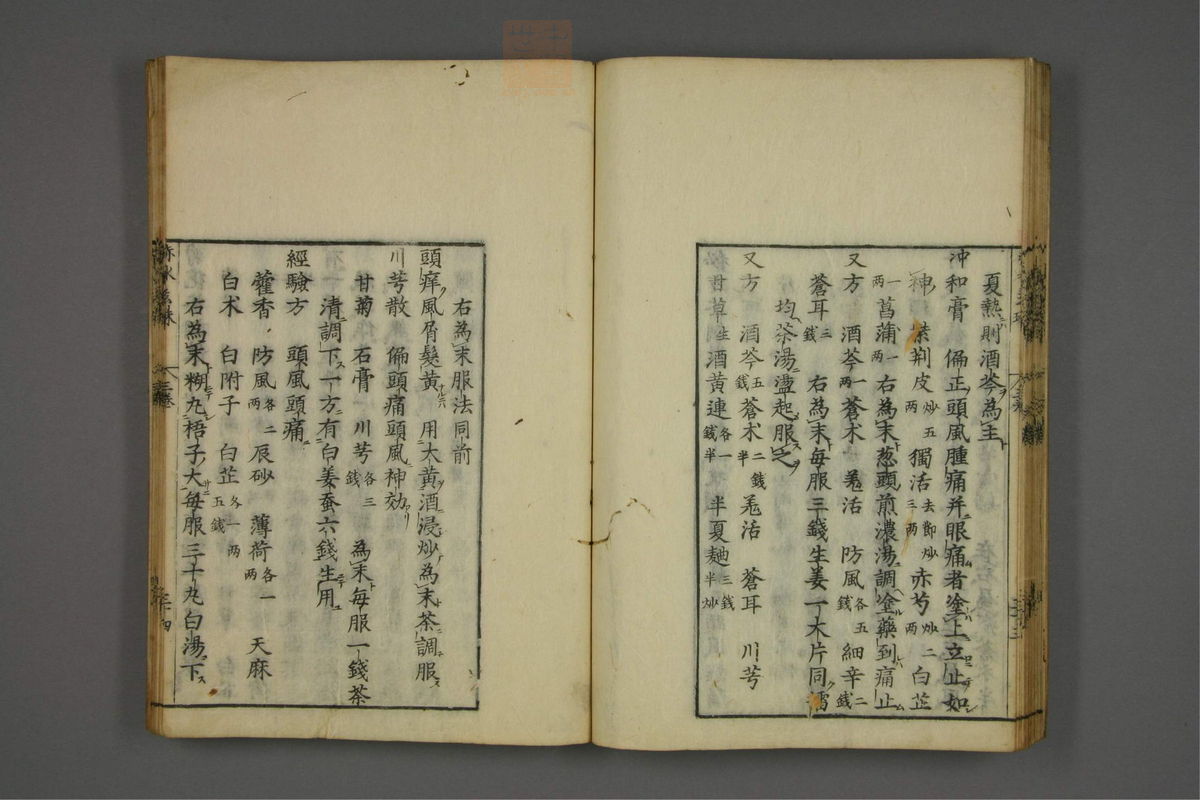 夏熱則酒芩為主
冲和膏　偏正頭風腫痛并眼痛者塗上立止如
神　紫荆皮炒五两　獨活去節炒三两　赤芍炒二两　白芷
一两　菖蒲一两　右為末葱頭煎濃湯調塗藥到痛止
又方　酒芩一两　蒼术　羗活　防風各五錢　細辛二錢
蒼耳三錢　右為末每服三錢生姜一大片同擂
均茶湯盪起服之
又方　酒芩五錢　蒼术二錢半　羗活　蒼耳　川芎
甘草生　酒黄連各一錢半　半夏麯三錢半炒
右為末服法同前
頭痒風屑髮黄　用大黄酒浸炒為末茶調服
川芎散　偏頭痛頭風神効
甘菊　石膏　川芎各三錢　為末每服一錢茶
清調下一方有白姜蚕六錢生用
經驗方　頭風頭痛
藿香　防風各二两　辰砂　薄荷各一两　天麻
白术　白附子　白芷各一两五錢
右為末糊丸梧子大每服三十丸白湯下